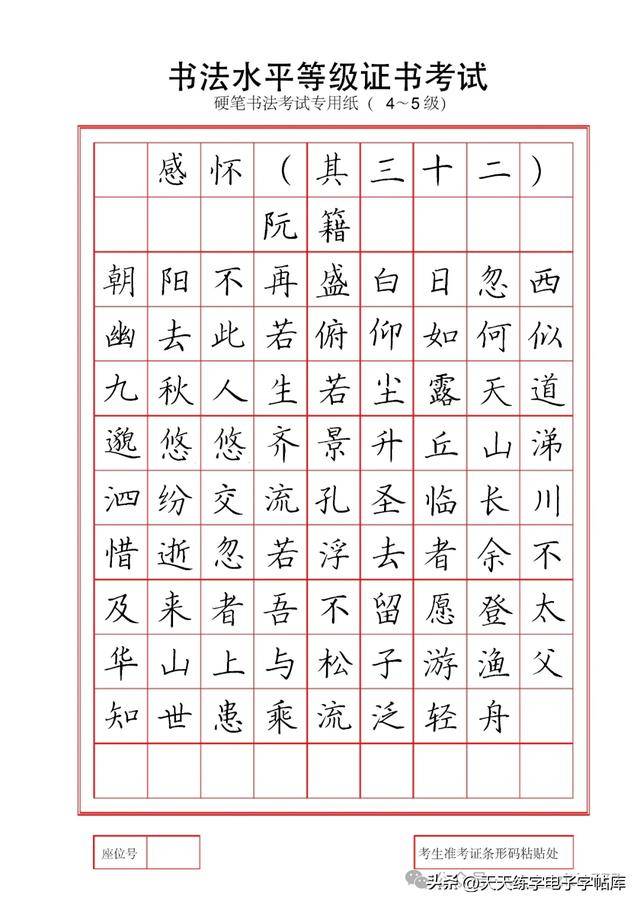 书法水平等级证书考试
硬笔书法考试专用纸（ 4～5级）
感怀（其三十二）
阮籍
朝阳不再盛白日忽西
幽去此若俯仰如何似
九秋人生若尘露天道
邈悠悠齐景升丘山涕
泗纷交流孔圣临长川
惜逝忽若浮去者余不
及来者吾不留愿登太
华山上与松子游渔父
知世患乘流泛轻舟
座位号
考生准考证条形码粘贴处
头条@天天练字电子字帖库